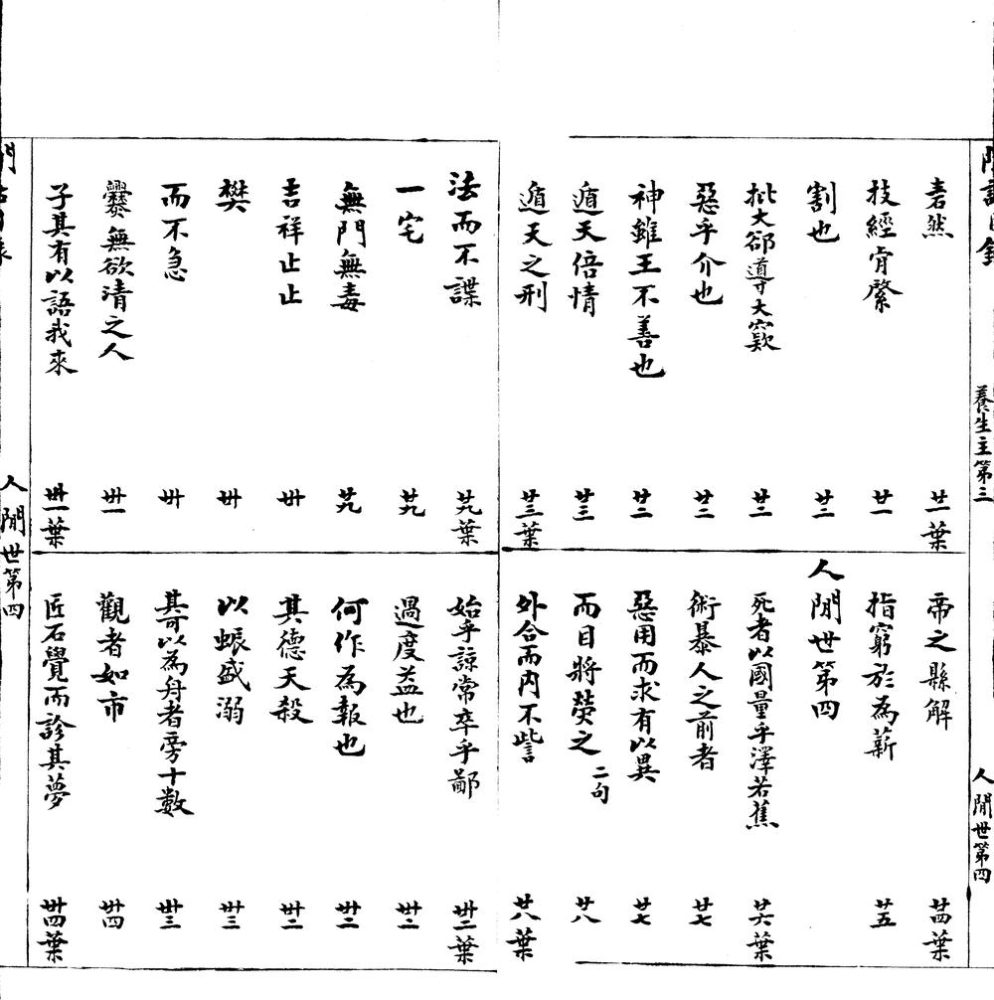 養生主第三
人閒世第四
砉然 廿一葉
技經肯綮 廿一
割也 廿二
批大郤導大窾 廿二
惡乎介也 廿二
神雖王不善也 廿二
遁天倍情 廿三
遁天之刑 廿三葉
帝之縣解 廿四葉
指窮於為薪 廿五
人閒世第四
死者以國量乎澤若蕉 廿六葉
術暴人之前者 廿七
惡用而求有以異 廿七
而目將熒之 二句 廿八
外合而內不訾 廿八葉
法而不諜 廿九葉
一宅 廿九
無門無毒 廿九
吉祥止止 卅
樊 卅
而不急 卅
爨無欲清之人 卅一
子其有以語我來 卅一葉
始乎諒常卒乎鄙 卅二葉
過度益也 卅二
何作為報也 卅二
其德天殺 卅二
以蜄盛溺 卅三
其可以為舟者旁十數 卅三
觀者如市 卅四
匠石覺而診其夢 卅四葉
人閒世第四